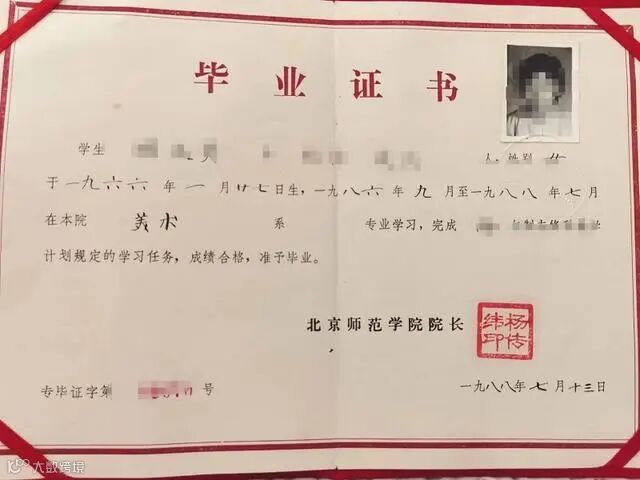 毕业证书
学生 人,性别
于一九六六年一月廿七日生,一九八六年九月至一九八八年七月
在本院 美术 系 专业学习,完成
计划规定的学习任务,成绩合格,准予毕业。
北京师范学院院长
杨传纬印
专毕证字第 号
一九八八年七月十三日
大数跨境